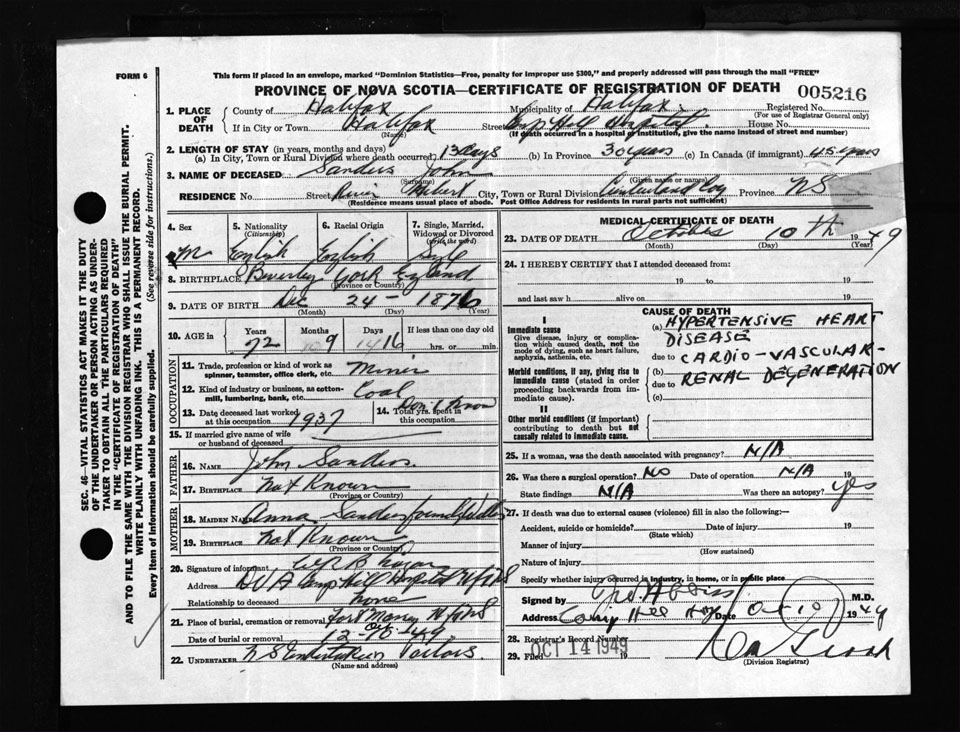 FORM 6
This form if placed in an envelope, marked "Dominion Statistics—Free, penalty for improper use $300," and properly addressed will pass through the mail "FREE"
PROVINCE OF NOVA SCOTIA—CERTIFICATE OF REGISTRATION OF DEATH
005216
SEC. 46—VITAL STATISTICS ACT MAKES IT THE DUTY
OF THE UNDERTAKER OR PERSON ACTING AS UNDER-
TAKER TO OBTAIN ALL THE PARTICULARS REQUIRED
IN THE "CERTIFICATE OF REGISTRATION OF DEATH"
AND TO FILE THE SAME WITH THE DIVISION REGISTRAR WHO SHALL ISSUE THE BURIAL PERMIT.
WRITE PLAINLY WITH UNFADING INK. THIS IS A PERMANENT RECORD.
Every item of Information should be carefully supplied. (See reverse side for instructions.)
1. PLACE OF DEATH
County of Halifax Municipality of Halifax Registered No.
(For use of Registrar General only)
If in City or Town Halifax Street Camp Hill Hospital House No.
(Name) (If death occurred in a hospital or institution, give the name instead of street and number)
2. LENGTH OF STAY (in years, months and days)
(a) In City, Town or Rural Division where death occurred 13 days (b) In Province 30 years (c) In Canada (if immigrant) 45 years
3. NAME OF DECEASED Sanders John
(Surname) (Given name or names)
RESIDENCE No. Street River Hebert City, Town or Rural Division Cumberland Co Province NS
(Residence means usual place of abode. Post Office Address for residents in rural parts not sufficient)
4. Sex
M
5. Nationality
(Citizenship)
English
6. Racial Origin
English
7. Single, Married,
Widowed or Divorced
(write the word)
Sgle
8. BIRTHPLACE Beverley York England
(Province or Country)
9. DATE OF BIRTH Dec 24 - 1876
(Month) (Day) (Year)
10. AGE in
Years Months Days If less than one day old
72 9 16 hrs. or min.
OCCUPATION
11. Trade, profession or kind of work as
spinner, teamster, office clerk, etc. Miner
12. Kind of industry or business, as cotton-
mill, lumbering, bank, etc. Coal
13. Date deceased last worked
at this occupation 1937
14. Total yrs. spent in
this occupation Don't Know
15. If married give name of wife
or husband of deceased
FATHER
16. NAME John Sanders
17. BIRTHPLACE Not Known
(Province or Country)
MOTHER
18. MAIDEN NAME Anna Sanders
19. BIRTHPLACE Not Known
(Province or Country)
20. Signature of informant
Address DVA Camp Hill Hospital Hfx NS
Relationship to deceased None
21. Place of burial, cremation or removal Fort Massey Hfx NS
Date of burial or removal 12-Oct-49
22. UNDERTAKER NS Undertaking Parlors.
MEDICAL CERTIFICATE OF DEATH
23. DATE OF DEATH October 10th 1949
(Month) (Day) (Year)
24. I HEREBY CERTIFY that I attended deceased from:
19 to 19
and last saw h alive on 19
CAUSE OF DEATH
I
Immediate cause
Give disease, injury or complica-
tion which caused death, not the
mode of dying, such as heart failure,
asphyxia, asthenia, etc.
(a) HYPERTENSIVE HEART
DISEASE
due to CARDIO-VASCULAR-
Morbid conditions, if any, giving rise to
immediate cause (stated in order
proceeding backwards from im-
mediate cause).
(b)
due to RENAL DEGENERATION
(c)
II
Other morbid conditions (if important)
contributing to death but not
causally related to immediate cause.
25. If a woman, was the death associated with pregnancy? N/A
26. Was there a surgical operation? NO Date of operation N/A 19
State findings N/A Was there an autopsy? yes
27. If death was due to external causes (violence) fill in also the following:—
Accident, suicide or homicide? Date of injury 19
(State which)
Manner of injury
(How sustained)
Nature of injury
Specify whether injury occurred in industry, in home, or in public place
Signed by M.D.
Address Camp Hill Hosp Date Oct 10 1949
28. Registrar's Record Number
29. Filed OCT 14 1949 19
(Division Registrar)